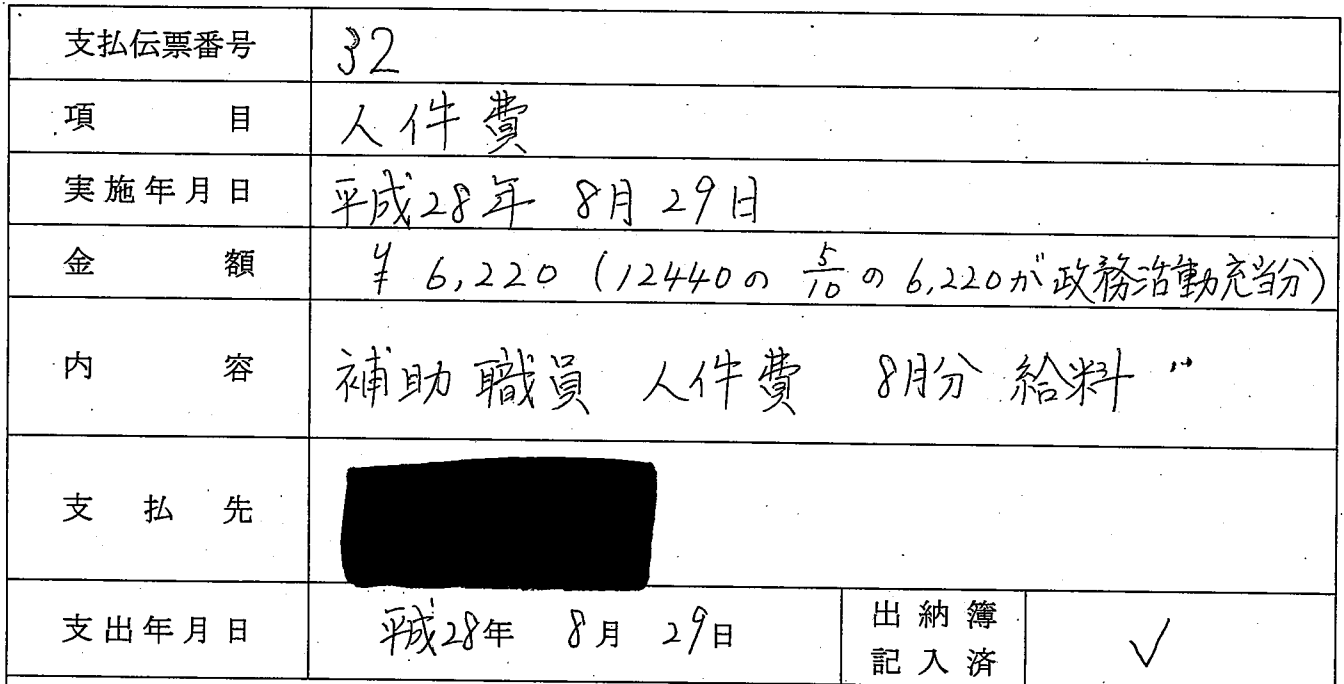 支払伝票番号 32
項目 人件費
実施年月日 平成28年 8月 29日
金額 ¥ 6,220 (12440の 5/10 の 6,220が政務活動充当分)
内容 補助職員 人件費 8月分 給料 〃
支払先
支出年月日 平成28年 8月 29日 出納簿
記入済 ✓